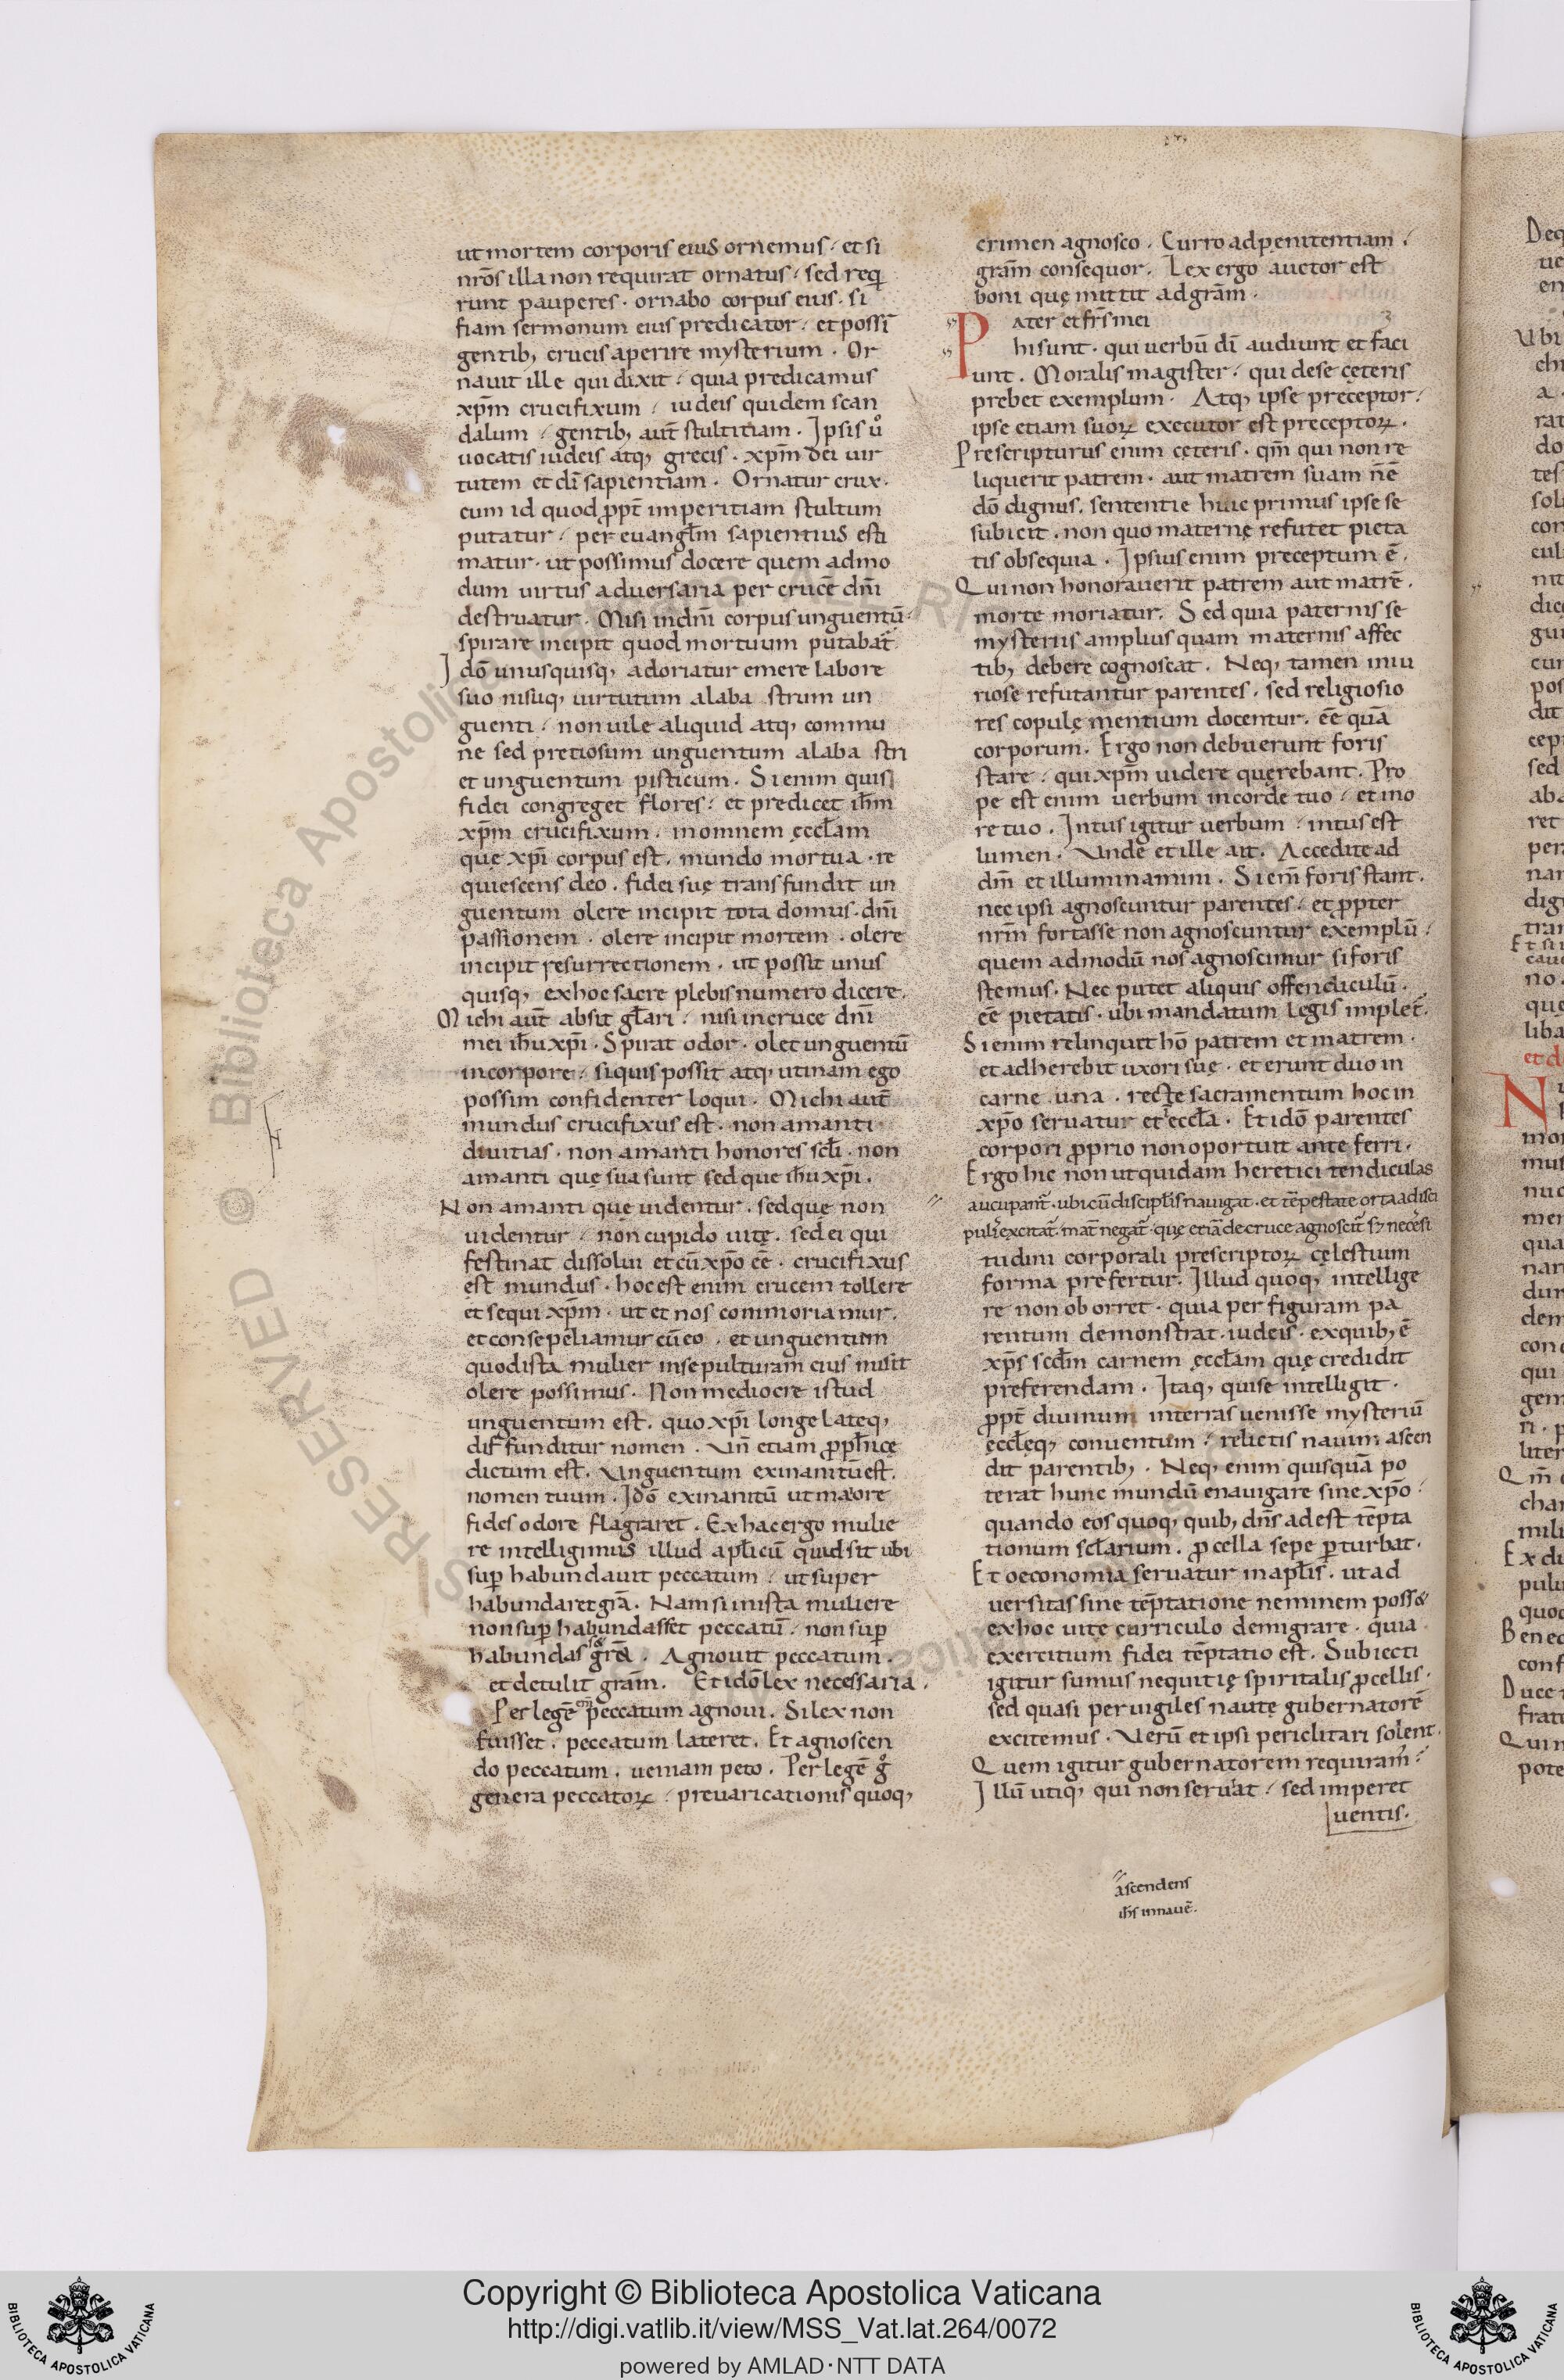 ut mortem corporis eius ornemus / et si
nr̄os illa non requirat ornatus / sed reqͥ
runt pauperes · ornabo corpus eius · si
fiam sermonum eius predicator / et possī
gentib; crucis aperire mysterium · Or
nauit ille qui dixit / quia predicamus
xp̄m crucifixum / iudeis quidem scan
dalum / gentib; aut̄ stultitiam · Ipsis u͛
uocatis iudeis atq; grecis · xp̄m dei uir
tutem et dī sapientiam · Ornatur crux ·
cum id quod ꝓpt̄ imperitiam stultum
putatur / per euangl̄m sapientius esti
matur · ut possimus docere quem admo
dum uirtus aduersaria per crucē dn̄i
destruatur · Misi in dn̄i corpus unguentū ·
spirare incipit quod mortuum putabat̄
Idō unusquisq; adoriatur emere labore
suo nisuq; uirtutum alaba strum un
guenti / non uile aliquid atq; commu
ne sed pretiosum unguentum alaba stri
et unguentum pisticum · Si enim quis
fidei congreget flores / et predicet ih̄m
xp̄m crucifixum / in omnem ęccl̄am
quę xp̄i corpus est · mundo mortua · re
quiescens deo · fidei suę transfundit un
guentum olere incipit tota domus · dn̄i
passionem · olere incipit mortem · olere
incipit resurrectionem · ut possit unus
quisq; ex hoc sacre plebis numero dicere ·
Michi aut̄ absit gl̄ari / nisi in cruce dn̄i
mei ih̄u xp̄i · Spirat odor · olet unguentū
in corpore / si quis possit atq; utinam ego
possim confidenter loqui · Michi aut̄
mundus crucifixus est · non amanti
diuitias · non amanti honores scl̄i · non
amanti quę sua sunt sed que ih̄u xp̄i ·
Non amanti quę uidentur · sed quę non
uidentur / non cupido uitę · sed ei qui
festinat dissolui et cū xp̄o ēē · crucifixus
est mundus · hoc est enim crucem tollere
et sequi xp̄m · ut et nos commoriamur ·
et consepeliamur cū eo · et unguentum
quod ista mulier in sepulturam eius misit
olere possimus · Non mediocre istud
unguentum est · quo xp̄i longe lateq;
dif funditur nomen · Vn̄ etiam ꝓph̄icę
dictum est · Vnguentum exinanitū est ·
nomen tuum · Idō exinanitū ut maiore
fides odore flagraret · Ex hac ergo mulie
re intelligimus illud apl̄icū quid sit ubi
suꝑ habundauit peccatum / ut super
habundaret gr̄a · Nam si in ista muliere
non suꝑ habundasset peccatū / non suꝑ
habundasset gr̄a · Agnouit peccatum ·
et detulit gr̄am · Et idō lex necessaria ·
Per legē em̄ peccatum agnoui · Si lex non
fuisset · peccatum lateret · Et agnoscen
do peccatum · ueniam peto · Per legē gͦ
genera peccatoꝝ / preuaricationis quoq;
crimen agnosco · Curro ad penitentiam /
gr̄am consequor · Lex ergo auctor est
boni quę mittit ad gr̄am ·
Pater et fr̄s mei
hi sunt · qui uerbū dī audiunt et faci
unt · Moralis magister / qui de se cęteris
prebet exemplum · Atq; ipse preceptor /
ipse etiam suoꝝ executor est preceptoꝝ ·
Prescripturus enim cęteris · qm̄ qui non re
liquerit patrem · aut matrem suam n̄ ē
dō dignus · sententie huic primus ipse se
subicit · non quo maternę refutet pieta
tis obsequia · Ipsius enim preceptum ē ·
Qui non honorauerit patrem aut matrē ·
morte moriatur · Sed quia paternis se
mysteriis amplius quam maternis affec
tib; debere cognoscat · Neq; tamen iniu
riose refutantur parentes · sed religiosio
res copulę mentium docentur · ēē quā
corporum · Ergo non debuerunt foris
stare / qui xp̄m uidere quęrebant · Pro
pe est enim uerbum in corde tuo / et in o
re tuo · Intus igitur uerbum / intus est
lumen · Vnde et ille ait · Accedite ad
dm̄ et illuminamini · Si em̄ foris stant ·
nec ipsi agnoscuntur parentes / et ꝓpter
nr̄m fortasse non agnoscuntur exemplū /
quem admodū nos agnoscimur si foris
stemus · Nec putet aliquis offendiculū ·
ēē pietatis · ubi mandatum legis implet̄ ·
Si enim relinquet hō patrem et matrem ·
et adherebit uxori suę · et erunt duo in
carne una · recte sacramentum hoc in
xp̄o seruatur et eccl̄a · Et idō parentes
corpori ꝓprio non oportuit ante ferri ·
Ergo hic non ut quidam heretici tendiculas
aucupant̄ · ubi cū discipl̄is nauigat · et tēpestate orta a disci
pulis excitat̄ · mat̄ negat̄ · quę etiā de cruce agnoscit̄ s; necesi
tudini corporali prescriptoꝝ cęlestium
forma prefertur · Illud quoq; intellige
re non ob orret · quia per figuram pa
rentum demonstrat · iudeis · ex quib; ē
xp̄s scd̄m carnem ęccl̄am quę credidit
preferendam · Itaq; qui se intelligit ·
ꝓpt̄ diuinum in terras uenisse mysteriū
ęccl̄ęq; conuentum / relictis nauim ascen
dit parentib; · Neq; enim quisquā po
terat hunc mundū enauigare sine xp̄o /
quando eos quoq; quib; dn̄s adest tēpta
tionum scl̄arium · ꝓcella sepe ꝑturbat ·
Et oeconomia seruatur in apl̄is · ut ad
uersitas sine tēptatione neminem poss&
ex hoc uitę curriculo demigrare · quia
exercitium fidei tēptatio est · Subiecti
igitur sumus nequitię spiritalis ꝓcellis ·
sed quasi per uigiles nautę gubernatorē
excitemus · Verū et ipsi periclitari solent ·
Quem igitur gubernatorem requiram̄ /
Illū utiq; qui non seruiat / sed imperet
uentis ·
ascendens
ih̄s in nauē ·
Copyright © Biblioteca Apostolica Vaticana
http://digi.vatlib.it/view/MSS_Vat.lat.264/0072
powered by AMLAD·NTT DATA